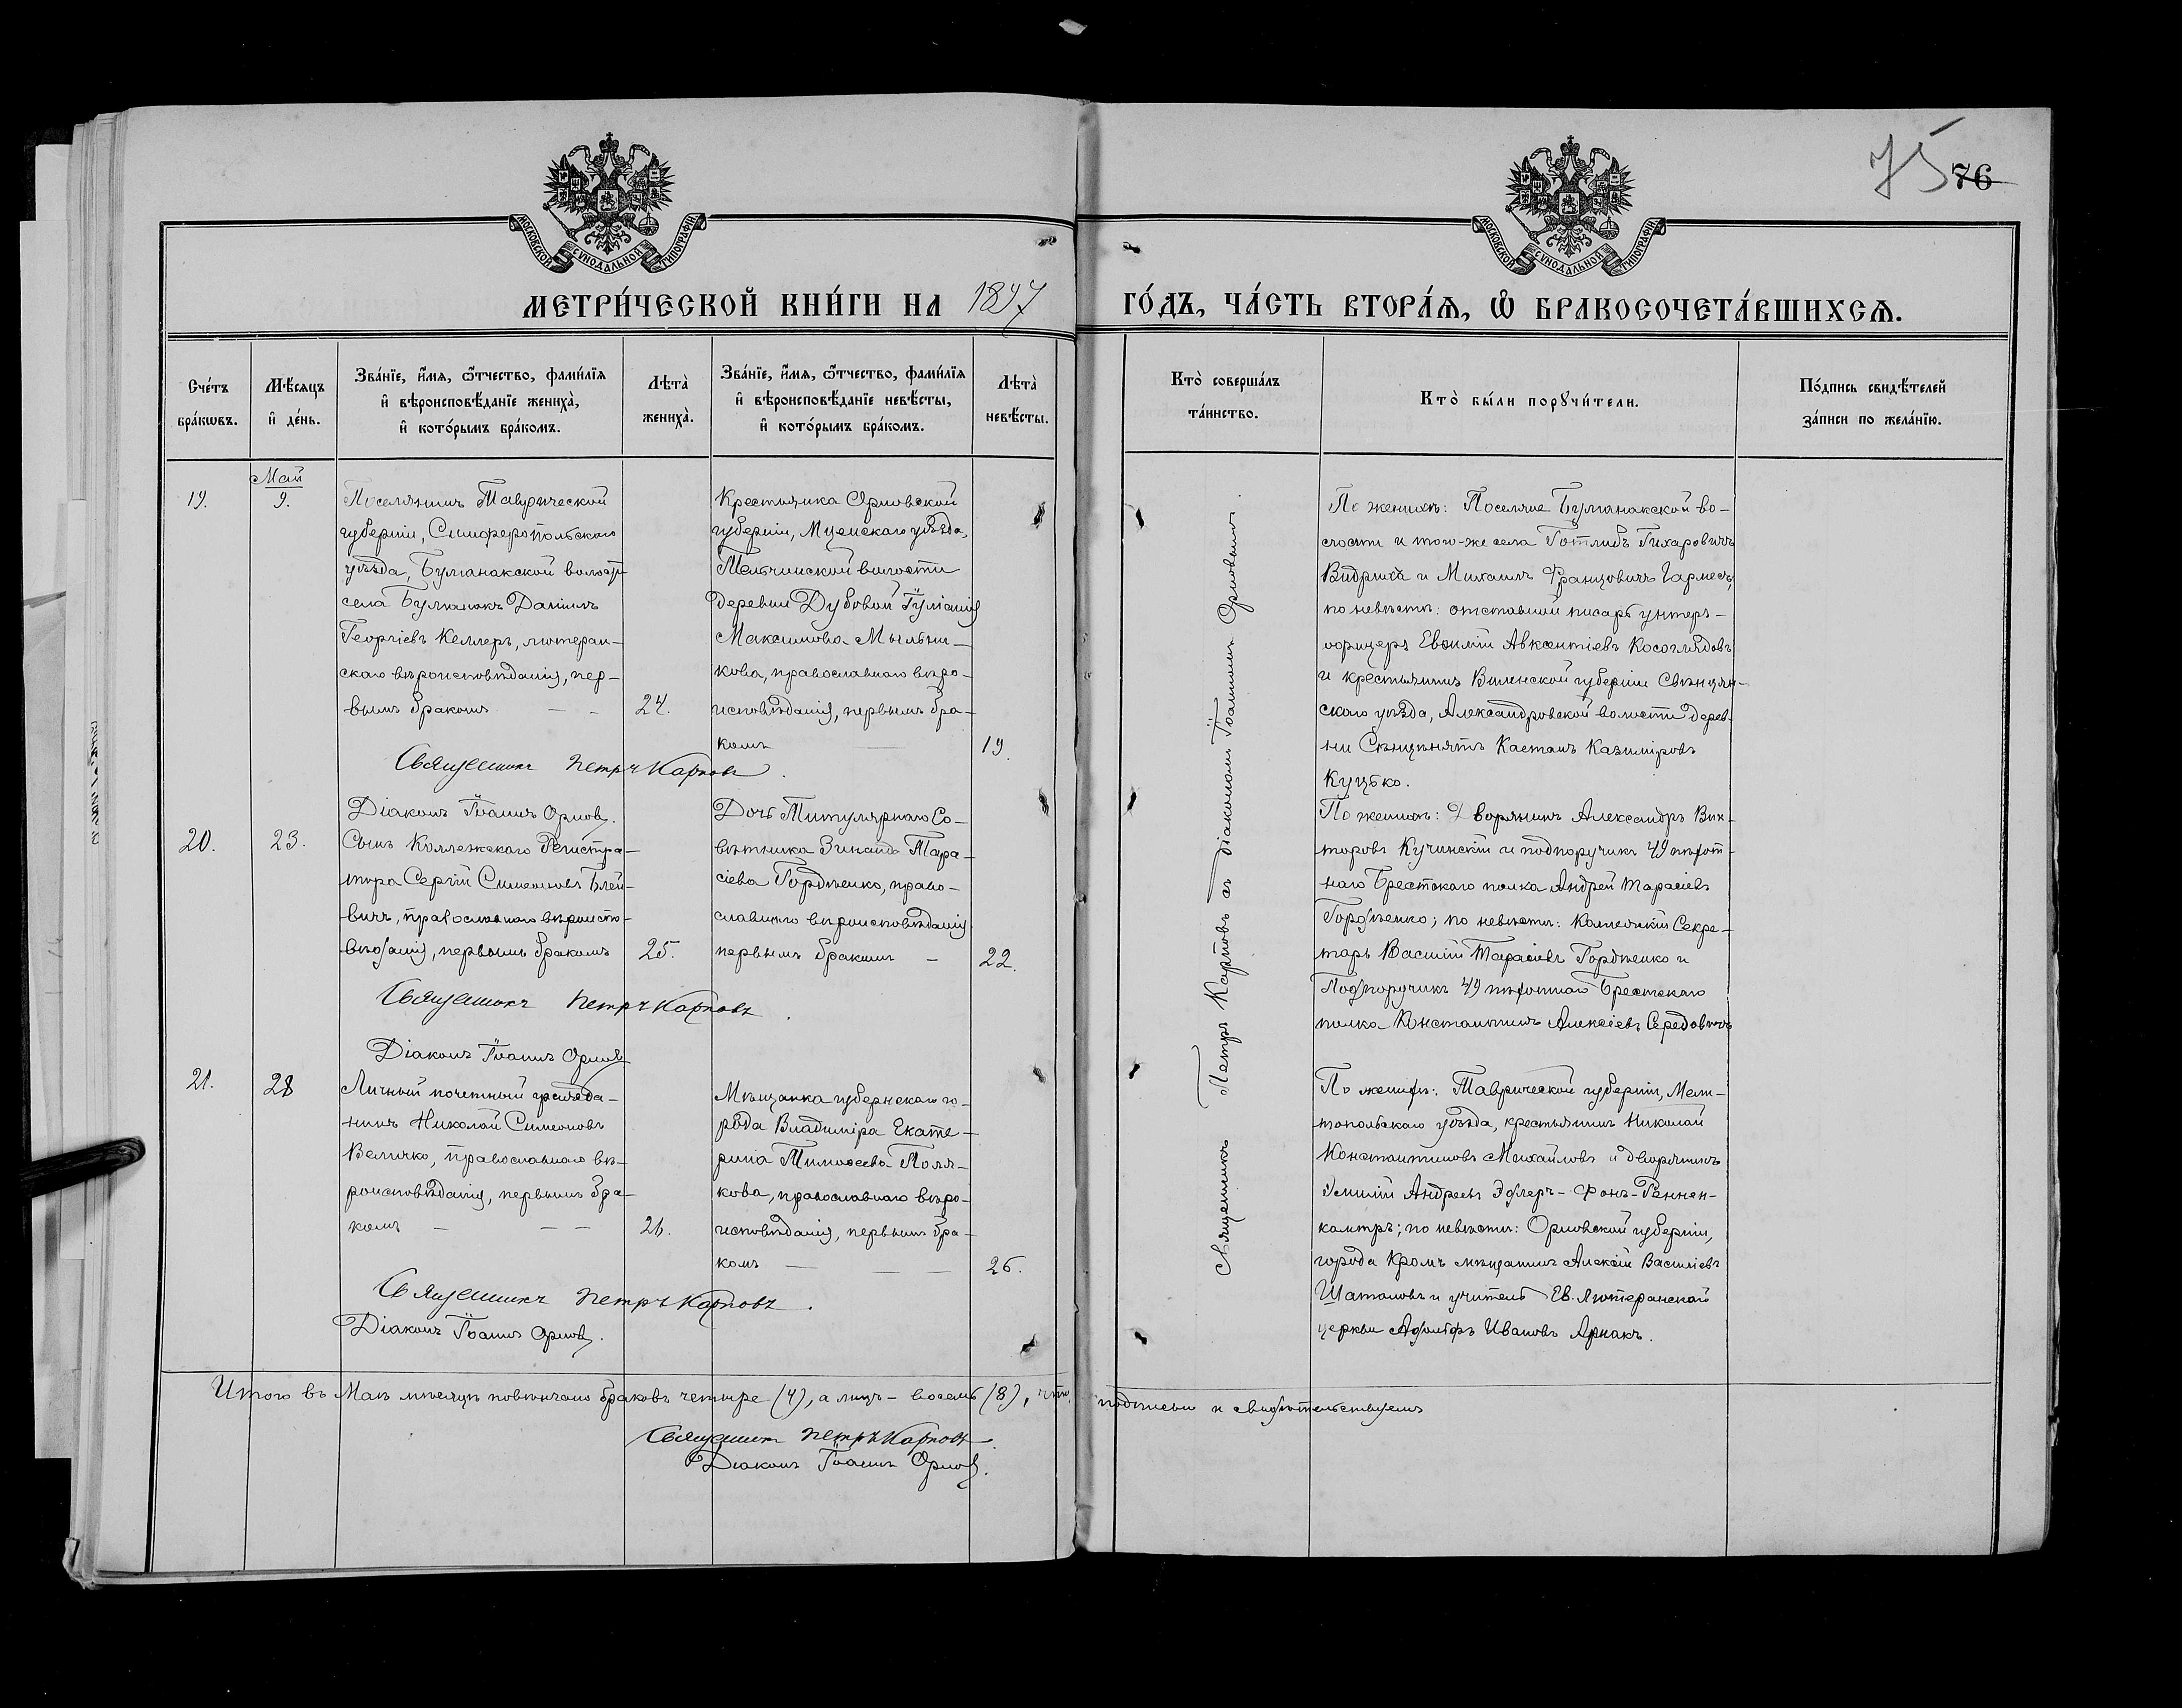 75 76
МОСКОВСКОЙ СѴНОДАЛЬНОЙ ТИПОГРАФІИ
МОСКОВСКОЙ СѴНОДАЛЬНОЙ ТИПОГРАФІИ
МЕТРИ́ЧЕСКОЙ КНИ́ГИ НА 1897 ГО́ДЪ, ЧА́СТЬ ВТОРА́Ѧ, Ѡ҆ БРАКОСОЧЕТА́ВШИХСѦ.
Сче́тъ
бра́кѡвъ.
Мѣ́сяцъ
и҆ де́нь.
Зва́нїе, и҆́мя, ѻ҆́тчество, фамѝлїя
и҆ вѣроисповѣ́данїе женихà,
и҆ кото́рымъ бра́комъ.
Лѣта̀
жениха̀.
Зва́нїе, и҆́мя, ѻ҆́тчество, фамѝлїя
и҆ вѣроисповѣ́данїе невѣ́сты,
и҆ кото́рымъ бра́комъ.
Лѣта̀
невѣ́сты.
Кто̀ соверша́лъ
та́инство.
Кто̀ бы́ли порꙋчи́тели.
По́дпись свидѣ́телей
за́писи по жела́нїю.
19.
Май
9.
Поселянинъ Таврической
губерніи, Симферопольскаго
уѣзда, Булганакской волости
села Булганакъ Даніилъ
Георгіевъ Келлеръ, лютеран-
скаго вѣроисповѣданія, пер-
вымъ бракомъ
24.
Крестьянка Орловской
губерніи, Мценскаго уѣзда,
Тельчинской волости
деревни Дубовой Іуліанія
Максимова Мыльни-
кова, православнаго вѣро-
исповѣданія, первымъ бра-
комъ
19.
Священникъ Петръ Карповъ.
Діаконъ Іоаннъ Орловъ.
Священникъ Петръ Карповъ съ діакономъ Іоанномъ Орловымъ.
По женихѣ: Поселяне Булганакской во-
лости и того-же села Готлибъ
и Михаилъ Францовичъ Гармсъ;
по невѣстѣ: отставной писарь унтеръ-
офицеръ Евфимій Авксентіевъ Косоглядовъ
и крестьянинъ Виленской губерніи Свѣнцян-
скаго уѣзда, Александровской волости дерев-
ни Каетанъ Казиміровъ
Куцько.
20.
23.
Сынъ Коллежскаго Регистра-
тора Сергій Симеоновъ Блей-
вичъ, православнаго вѣроиспо-
вѣданія, первымъ бракомъ
25.
Дочь Титулярнаго Со-
вѣтника Зинаида Тара-
сіева Гордѣенко, право-
славнаго вѣроисповѣданія
первымъ бракомъ
22.
Священникъ Петръ Карповъ.
Діаконъ Іоаннъ Орловъ
По женихѣ: Дворянинъ Александръ Вик-
торовъ Кучинскій и подпоручикъ 49 пѣхот-
наго Брестскаго полка Андрей Тарасіевъ
Гордѣенко; по невѣстѣ: Коллежскій Секре-
тарь Василій Тарасіевъ Гордѣенко и
Подпоручикъ 49 пѣхотнаго Брестскаго
полка Константинъ Алексіевъ Середовичъ
21.
28
Личный почетный гражда-
нинъ Николай Симеоновъ
Величко, православнаго вѣ-
роисповѣданія, первымъ бра-
комъ
26.
Мѣщанка губернскаго го-
рода Владиміра Екате-
рина Тимоѳеева Поля-
кова, православнаго вѣро-
исповѣданія, первымъ бра-
комъ
26.
Священникъ Петръ Карповъ.
Діаконъ Іоаннъ Орловъ.
По женихѣ: Таврической губерніи, Мели-
топольскаго уѣзда, крестьянинъ Николай
Константиновъ Михайловъ и дворянинъ
Эмилій Андреевъ Эдлеръ-Фонъ-Реннен-
кампфъ; по невѣстѣ: Орловской губерніи,
города Кромъ мѣщанинъ Алексій Василіевъ
Шаталовъ и учитель Ев. Лютеранской
церкви Адольфъ Ивановъ Арнакъ.
Итого въ Маѣ мѣсяцѣ повѣнчано браковъ четыре (4), а лицъ - восемь (8), что подписью и свидѣтельствуемъ
Священникъ Петръ Карповъ.
Діаконъ Іоаннъ Орловъ.